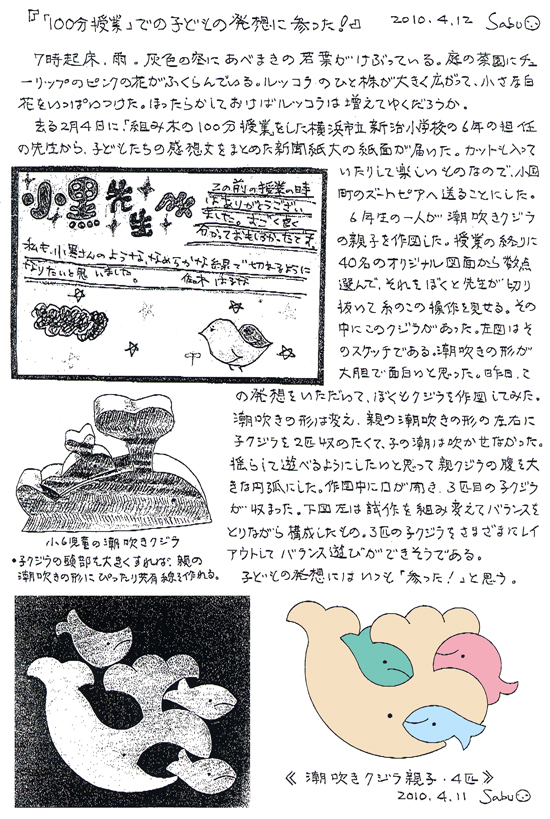 『「100分授業」での子どもの発想に参った!』 2010.4.12 Sabu
7時起床、雨。灰色の空にあべまきの若葉がけぶっている。庭の菜園にチュ
ーリップのピンクの花がふくらんでいる。ルッコラのひと株が大きく広がって、小さな白
花をいっぱいつけた。ほったらかしておけばルッコラは増えてゆくだろうか。
去る2月4日に、「組み木の100分授業」をした横浜市立新治小学校の6年の担任
の先生から、子どもたちの感想文をまとめた新聞紙大の紙面が届いた。カットも入って
いたりして楽しいものなので、小国
町のズートピアへ送ることにした。
6年生の一人が潮吹きクジラ
の親子を作図した。授業の終りに
40名のオリジナル図面から数点
選んで、それをぼくと先生が切り
抜いて糸のこの操作を見せる。その
中にこのクジラがあった。左図はそ
のスケッチである。潮吹きの形が
大胆で面白いと思った。昨日、そ
の発想をいただいて、ぼくもクジラを作図してみた。
潮吹きの形は変え、親の潮吹きの形の左右に
子クジラを2匹収めたくて、子の潮は吹かせなかった。
揺らして遊べるようにしたいと思って親クジラの腹を大
きな円弧にした。作図中に口が開き、3匹目の子クジラ
が収まった。下図左は試作を組み変えてバランスを
とりながら構成したもの。3匹の子クジラをさまざまにレイ
アウトしてバランス遊びができそうである。
子どもの発想にはいつも「参った!」と思う。
小黒先生へ
この前の授業の時
はありがとうござい
ました。すごく良く
分かっておもしろかったです。
私も、小黒さんのような、なめらかな線で切れるように
なりたいと思いました。
佐木 はるな
小6児童の潮吹きクジラ
•子クジラの頭部も大きくすれば、親の
潮吹きの形にぴったり共有線を作れる。
《 潮吹きクジラ親子・4匹 》
2010.4.11 Sabu